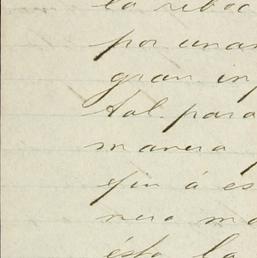 la riboc
por unas
gran in
tal. para
manera
fin á es
nera ma
ésto la